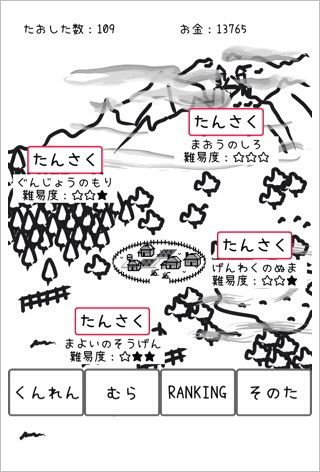 たおした数：109
お金：13765
たんさく
まおうのしろ
難易度：☆☆☆
たんさく
ぐんじょうのもり
難易度：☆☆★
たんさく
げんわくのぬま
難易度：☆☆★
たんさく
まよいのそうげん
難易度：☆★★
くんれん
むら
RANKING
そのた